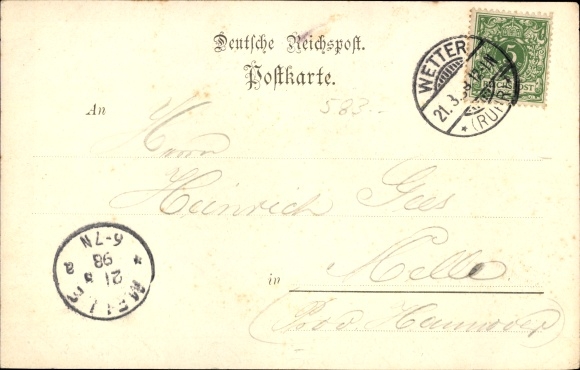 Deutsche Reichspost.
Postkarte.
5
WETTER
21.3.
(RUHR)
583.
An
Herrn
Heinrich Gees
in Melle
(Prov Hannover)
MELLE
21
3
98
6-7N